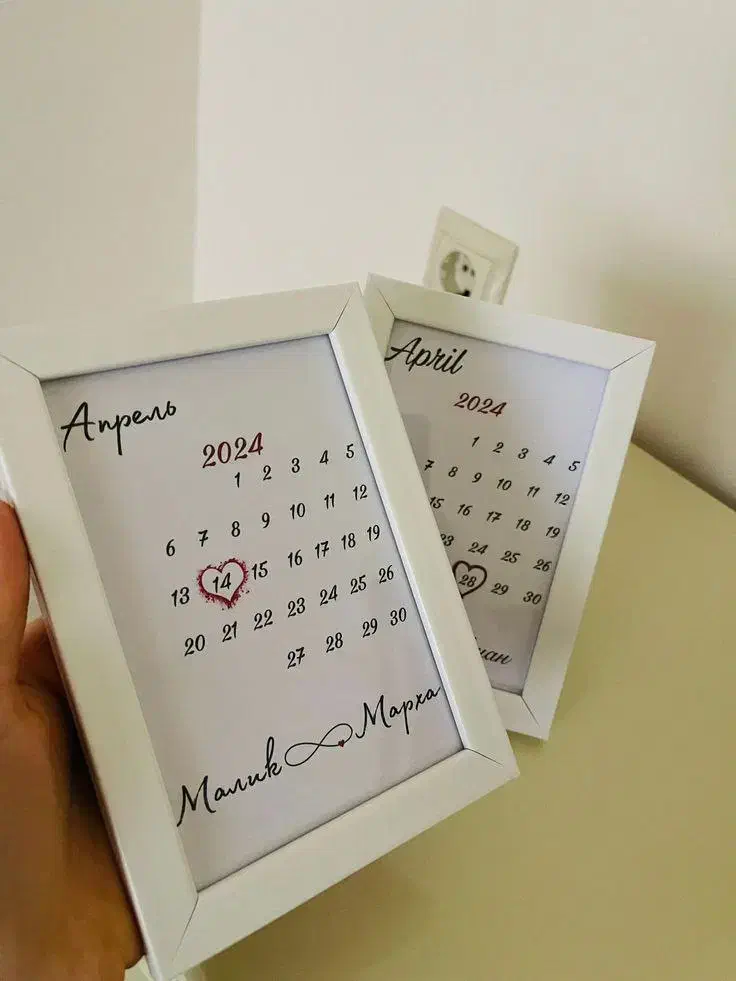 Апрель
2024
1 2 3 4 5
6 7 8 9 10 11 12
13 14 15 16 17 18 19
20 21 22 23 24 25 26
27 28 29 30
Малик Марха
April
2024
1 2 3 4 5
7 8 9 10 11 12
15 16 17 18 19
23 24 25 26
28 29 30